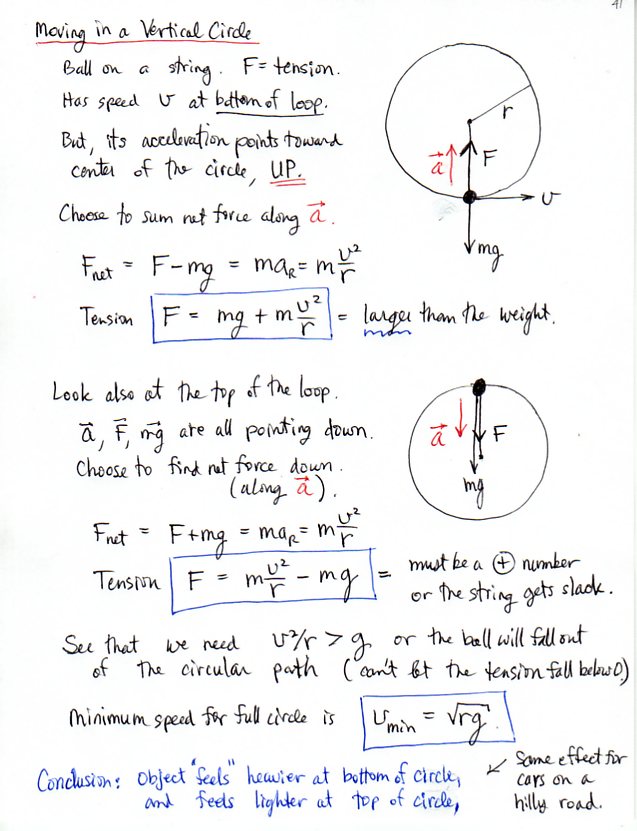 41
Moving in a Vertical Circle
Ball on a string. F = tension.
Has speed v at bottom of loop.
But, its acceleration points toward
center of the circle, UP.
Choose to sum net force along a⃗.
r
a⃗
F
v
mg
Fnet = F - mg = maR = m v²/r
Tension F = mg + m v²/r = larger than the weight.
Look also at the top of the loop.
a⃗, F⃗, mg⃗ are all pointing down.
Choose to find net force down.
(along a⃗).
a⃗
F
mg
Fnet = F + mg = maR = m v²/r
Tension F = m v²/r - mg = must be a ⊕ number
or the string gets slack.
See that we need v²/r > g or the ball will fall out
of the circular path (can't let the tension fall below 0.)
Minimum speed for full circle is vmin = √rg
Conclusion: Object "feels" heavier at bottom of circle,
and feels lighter at top of circle,
↙ Same effect for
cars on a
hilly road.